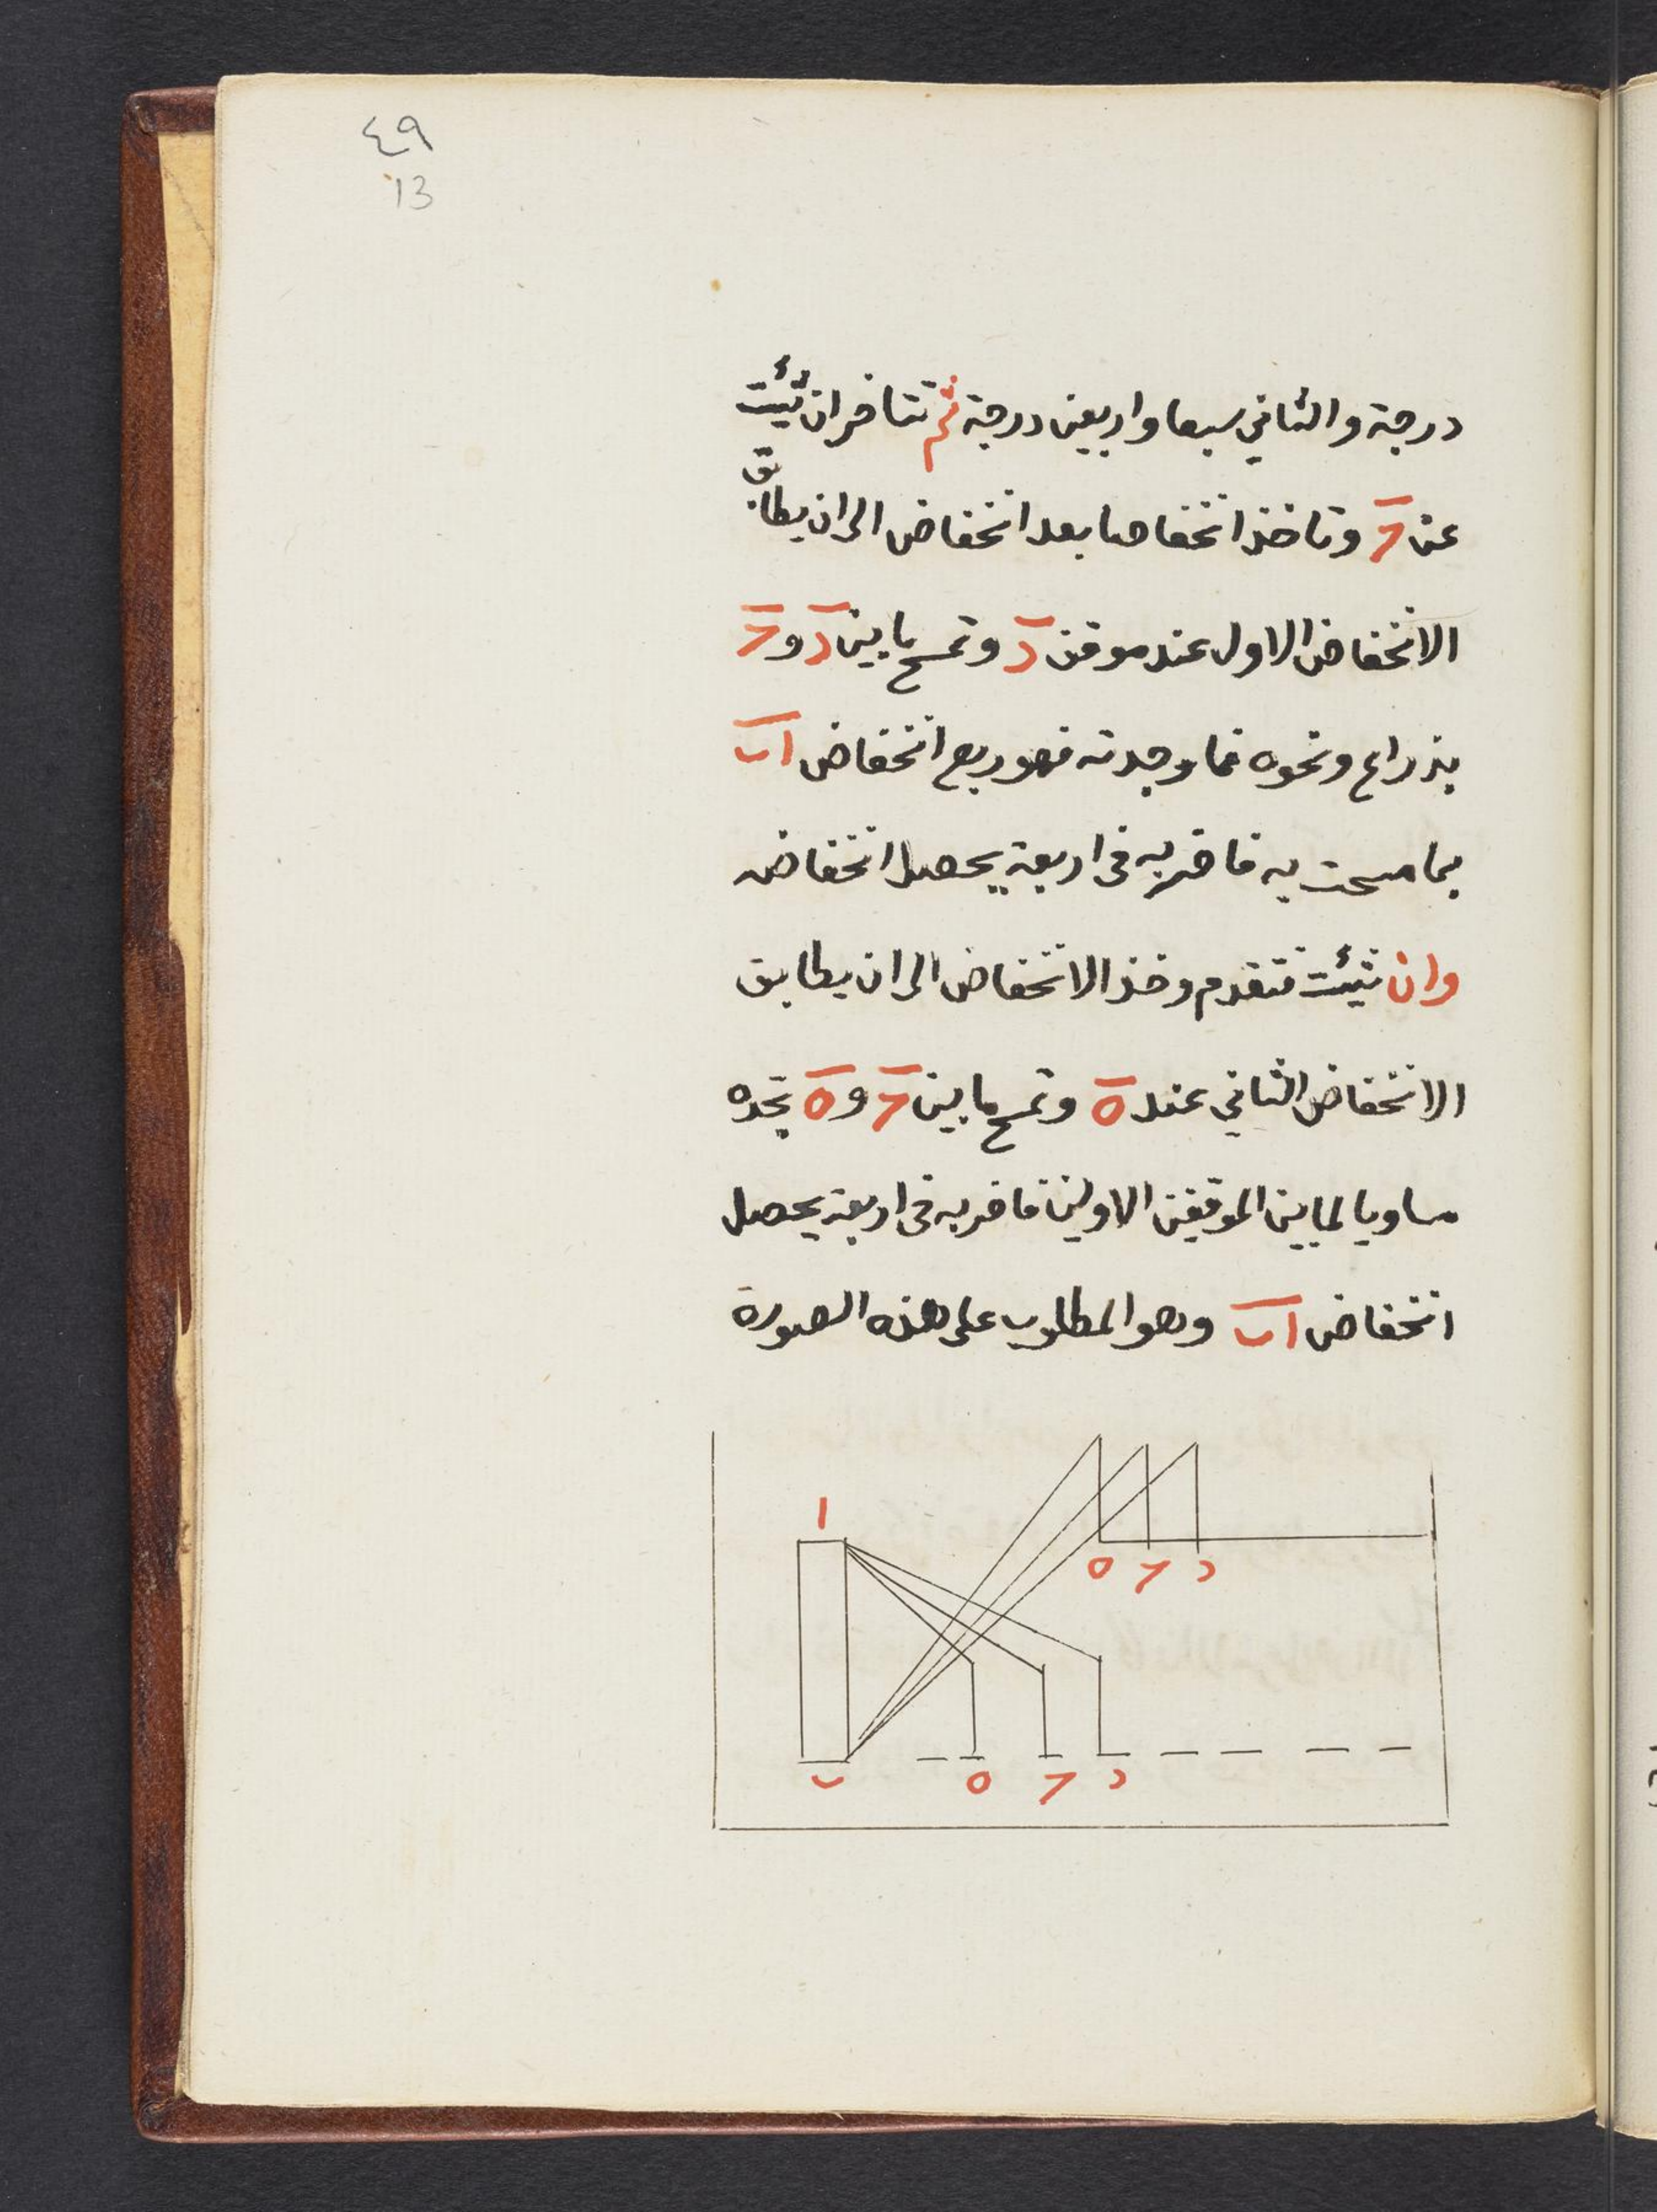 ٤٩
13
درجة والثاني سبعا واربعين درجة ثم تتاخر ان شئت
عن حـ وتاخذ انخفاضا بعد انخفاض الى ان يطابق
الانخفاض الاول عند موقف د وتمسح ما بين د و حـ
بذراع ونحوه فما وجدته فهو ربع انخفاض اب
بما مسحت به فاضربه فى اربعة يحصل انخفاضه
وان شئت فتقدم وخذ الانخفاض الى ان يطابق
الانخفاض الثاني عند ه وتمسح ما بين حـ و ه تجده
مساويا لما بين الموقفين الاولين فاضربه فى اربعة يحصل
انخفاض اب وهو المطلوب على هذه الصورة
ا
د حـ ه
د حـ ه ب